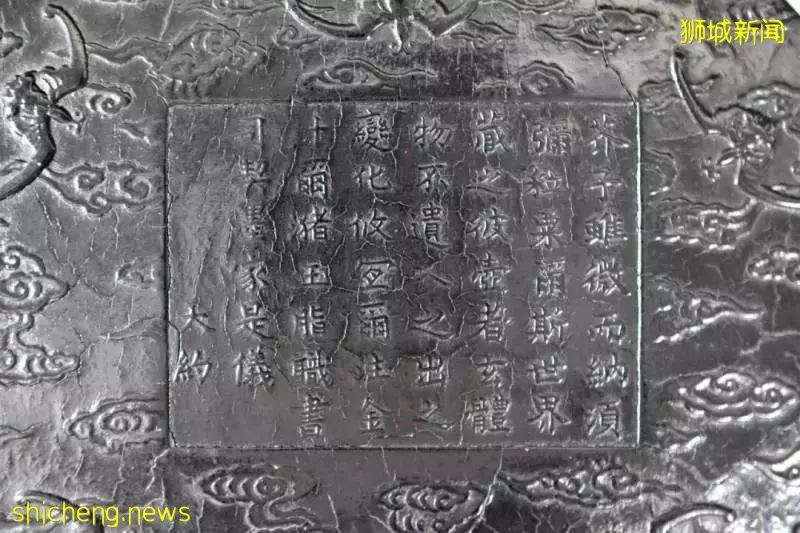 狮城新闻
芥子雖微而納須
彌粒粟爾斯世界
藏之彼壺者玄體
物不遺入之出之
變化攸宜爾注金
十爾豬玉脂職書
司契墨家是儀
大約
shicheng.news